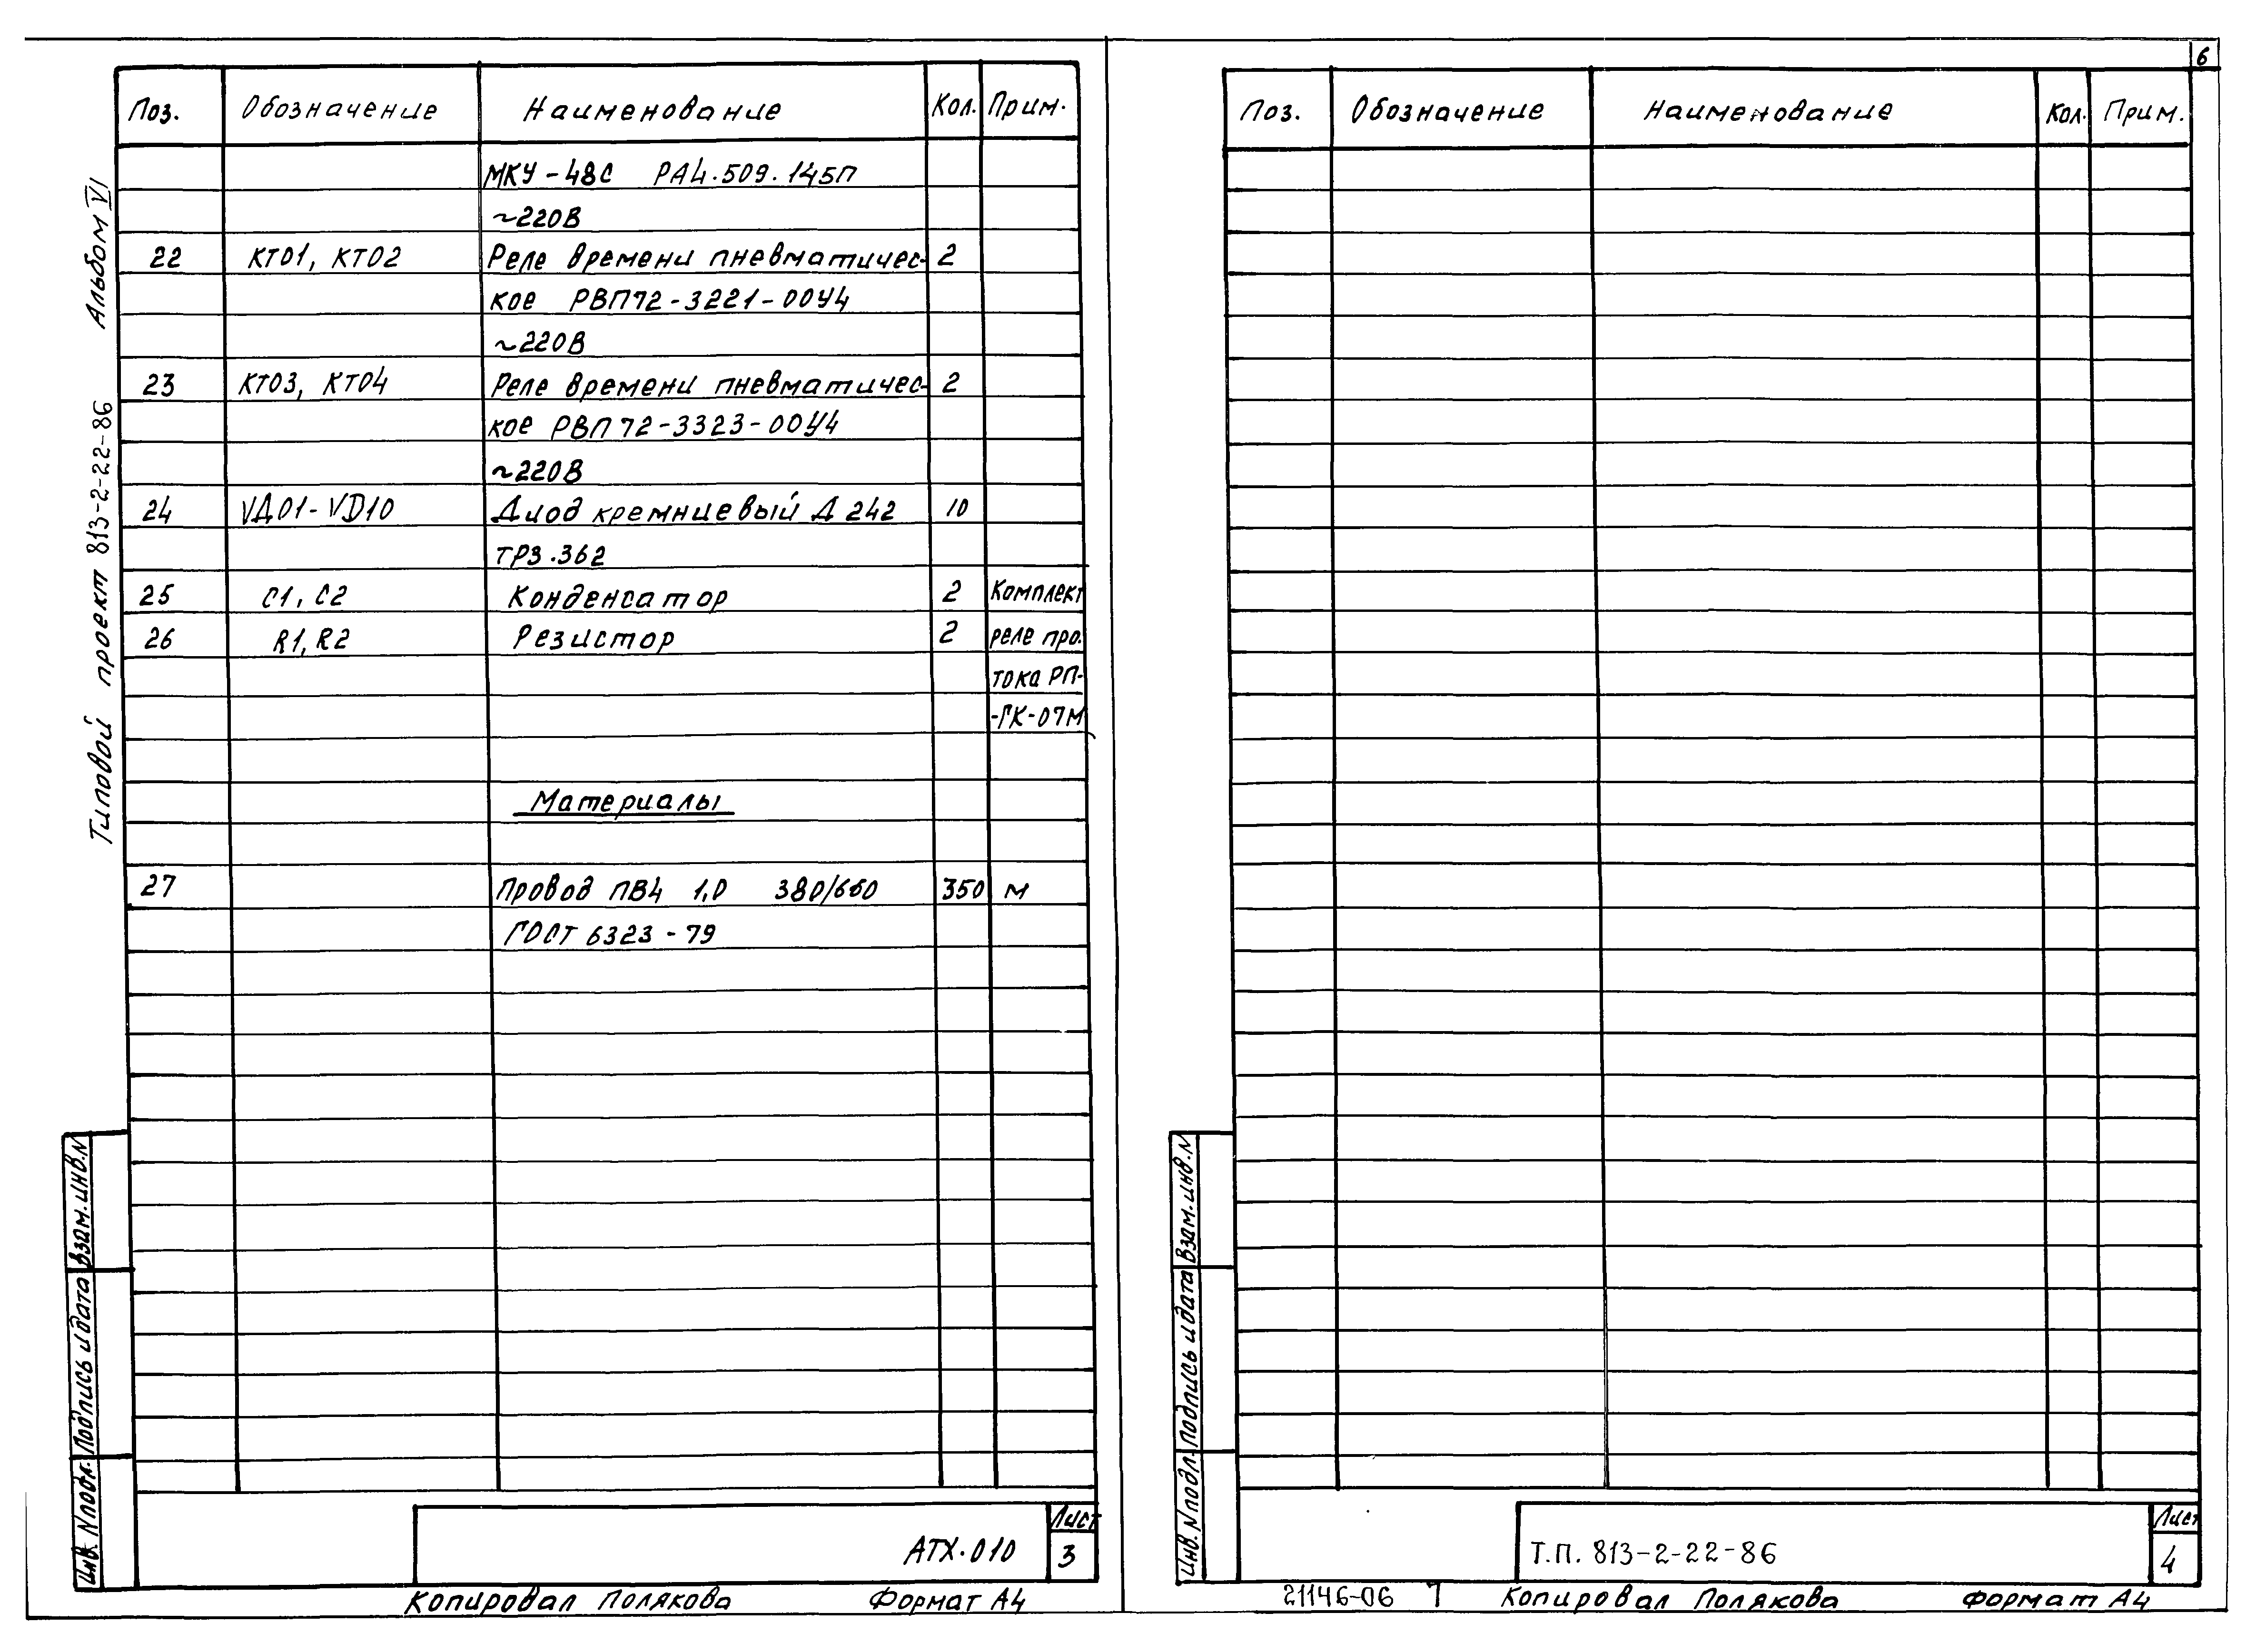 6
Альбом VI
Типовой проект 813-2-22-86
Поз. Обозначение Наименование Кол. Прим.
МКУ-48С РА4.509.145П
~220В
22 КТ01, КТ02 Реле времени пневматичес- 2
кое РВП72-3221-00У4
~220В
23 КТ03, КТ04 Реле времени пневматичес- 2
кое РВП72-3323-00У4
~220В
24 VД01-VD10 Диод кремниевый Д242 10
ТР3.362
25 С1, С2 Конденсатор 2 Комплект
26 R1, R2 Резистор 2 реле про-
тока РП-
-ГК-07М
Материалы
27 Провод ПВ4 1,0 380/660 350 м
ГОСТ 6323-79
Взам. инв. N
Подпись и дата
Инв. N подл.
АТХ.010
Лист
3
Копировал Полякова Формат А4
Поз. Обозначение Наименование Кол. Прим.
Взам. инв. N
Подпись и дата
Инв. N подл.
Т.П. 813-2-22-86
Лист
4
21146-06 7 Копировал Полякова Формат А4